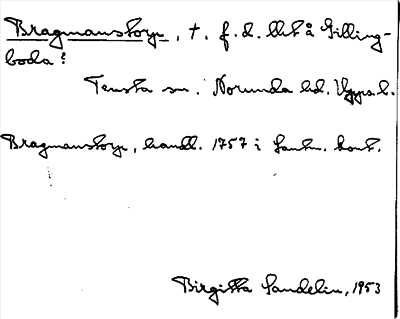 Bragmanstorp, t. f.d. llht å Gilling-
boda?
Tensta sn. Norunda hd. Upps. l.
Bragmanstorp, handl. 1757 i Lantm. kont.
Birgitta Sandelin, 1953